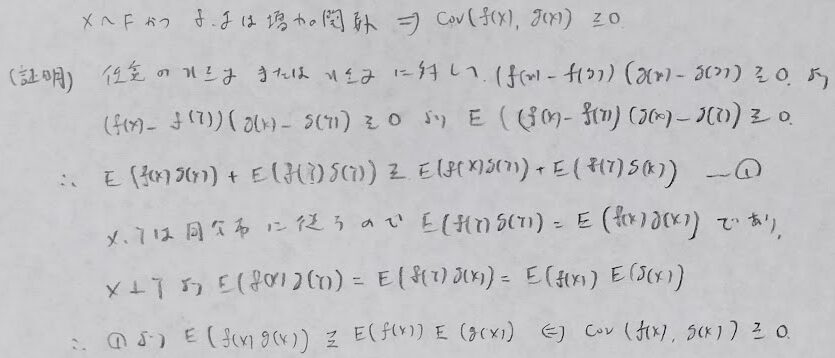 X~F かつ f, g は増加関数 ⇒ Cov(f(X), g(X)) ≧ 0
(証明) 任意の x≧y または x≦y に対して, (f(x) - f(y)) (g(x) - g(y)) ≧ 0. より
(f(X) - f(Y)) (g(X) - g(Y)) ≧ 0 より E ((f(X) - f(Y)) (g(X) - g(Y)) ≧ 0.
∴ E (f(X) g(X)) + E (f(Y) g(Y)) ≧ E (f(X) g(Y)) + E (f(Y) g(X)) — ①
X, Y は同分布に従うので E (f(Y) g(Y)) = E (f(X) g(X)) であり,
X ⊥ Y より E (f(X) g(Y)) = E (f(Y) g(X)) = E (f(X)) E (g(X))
∴ ① より E (f(X) g(X)) ≧ E (f(X)) E (g(X)) ⇔ Cov (f(X), g(X)) ≧ 0.